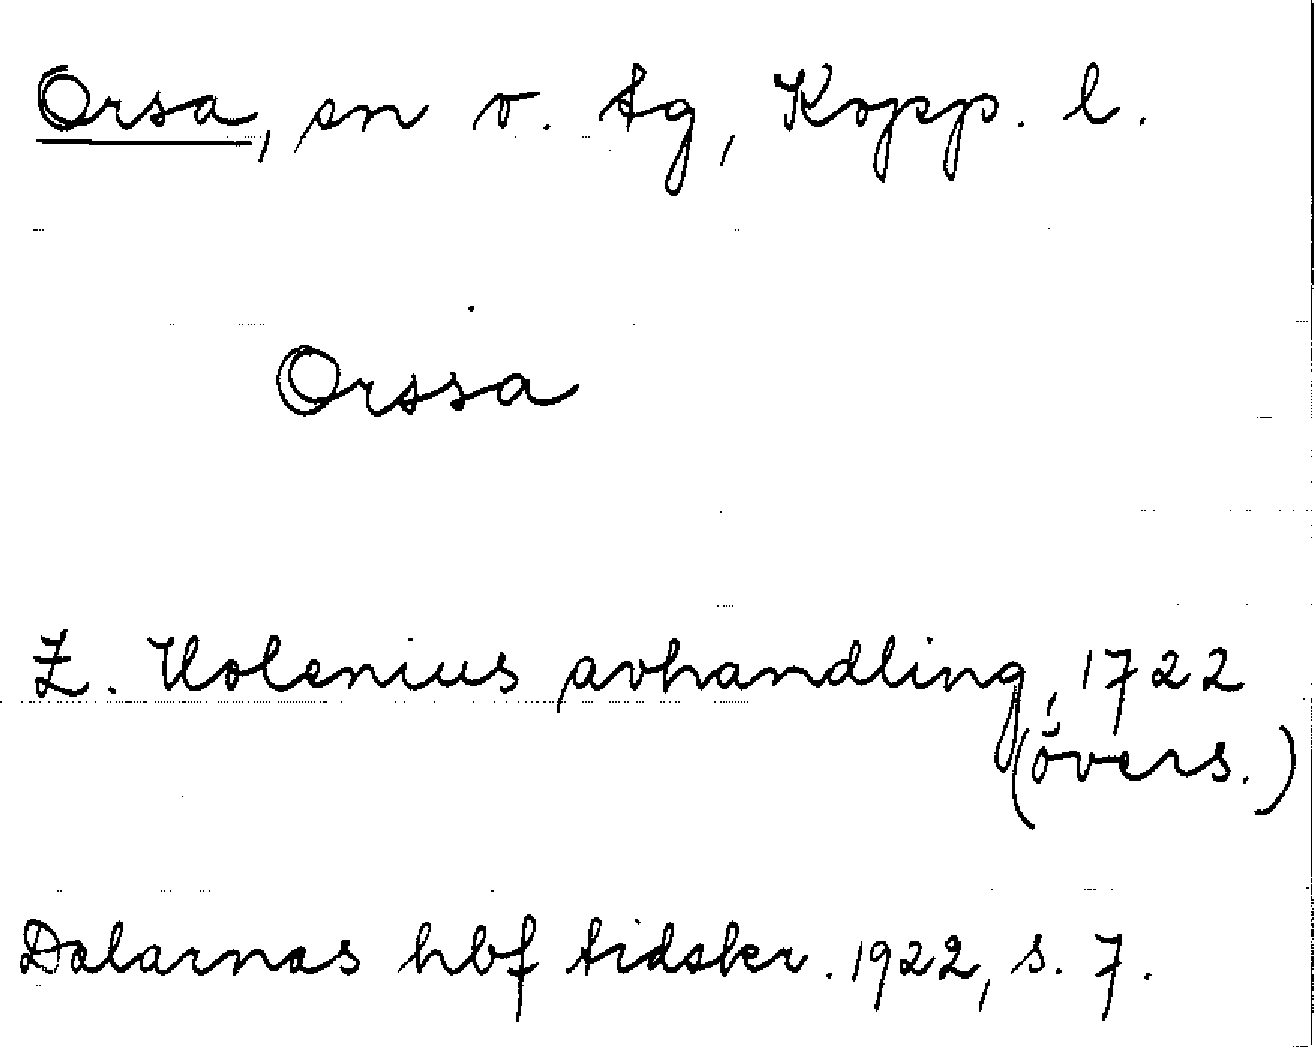 Orsa, sn o. tg, Kopp. l.
Orssa
Z. Holenius avhandling, 1722
(övers.)
Dalarnas hbf tidskr. 1922, s. 7.